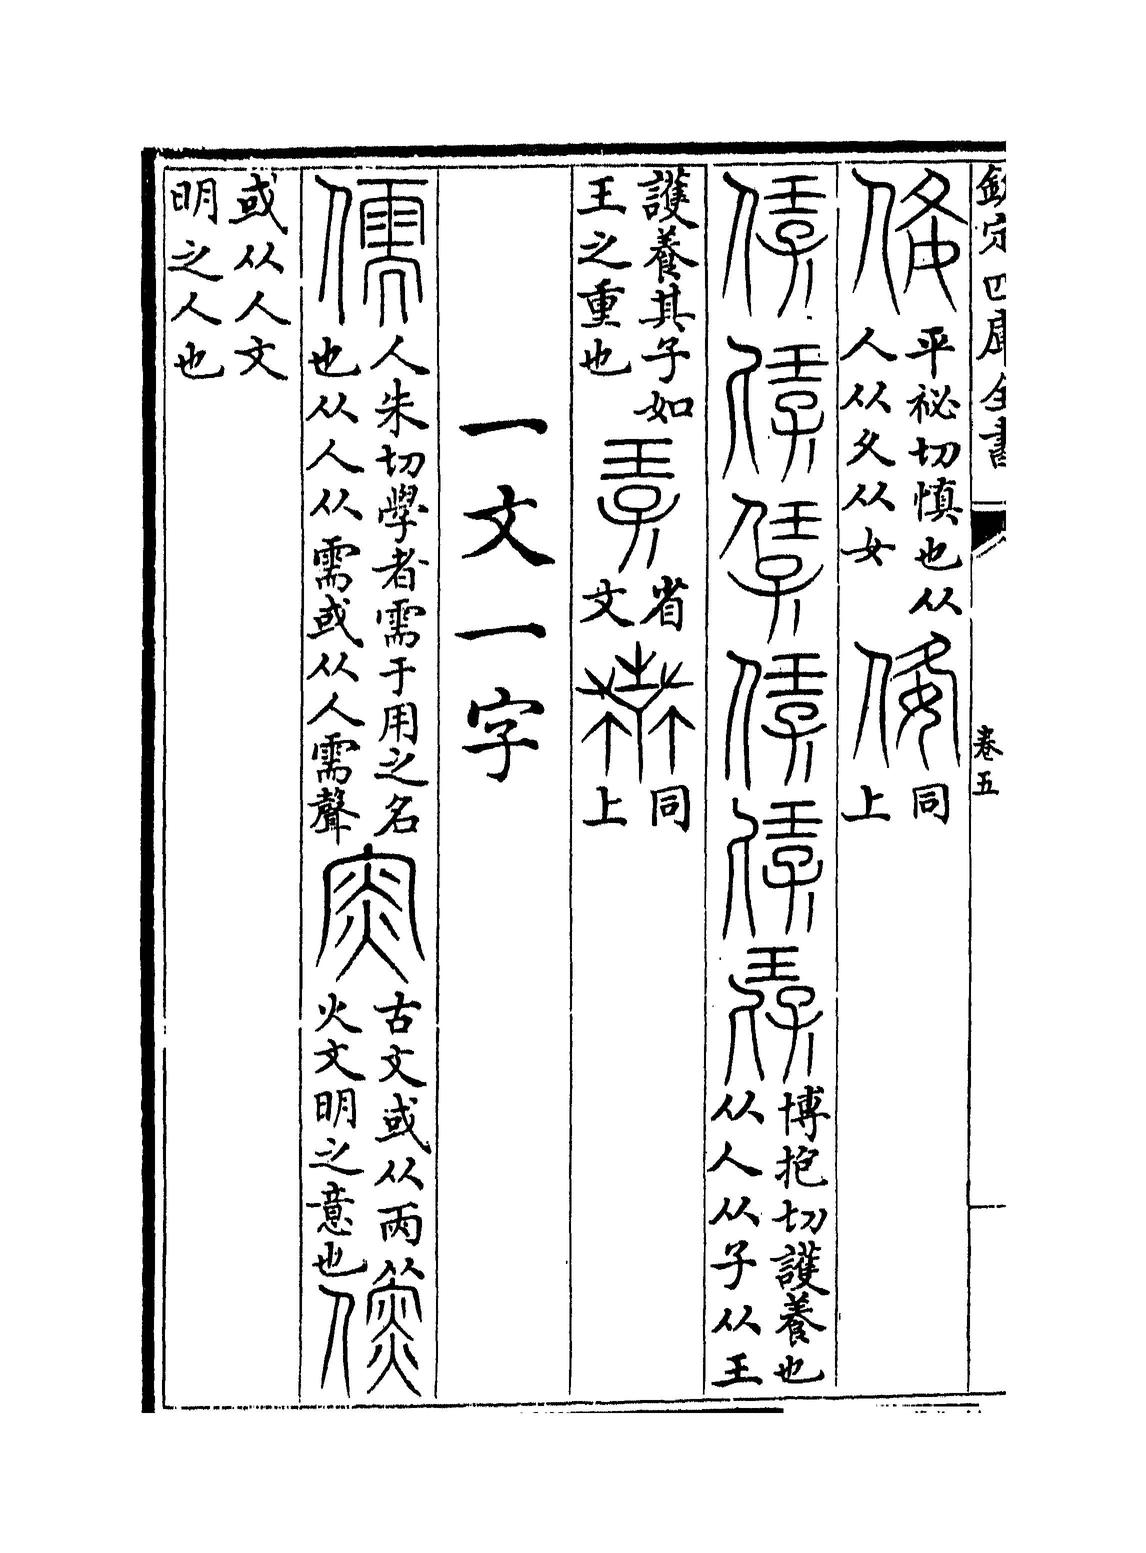 欽定四庫全書
卷五
平祕切慎也从
人从夂从女
同
上
博抱切護養也
从人从子从王
護養其子如
王之重也
省
文
同
上
一文一字
儒
人朱切學者需于用之名
也从人从需或从人需聲
古文或从兩
火文明之意也
或从人文
明之人也